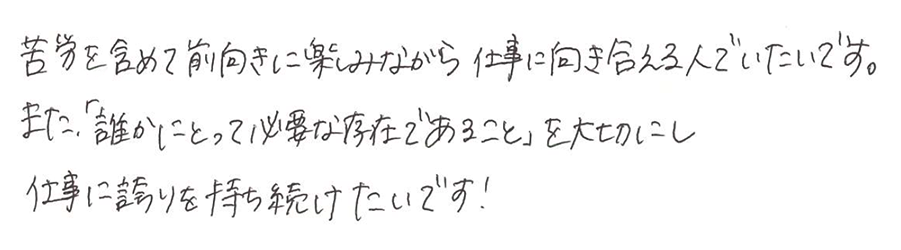 苦労を含めて前向きに楽しみながら仕事に向き合える人でいたいです。
また、「誰かにとって必要な存在であること」を大切にし
仕事に誇りを持ち続けたいです!